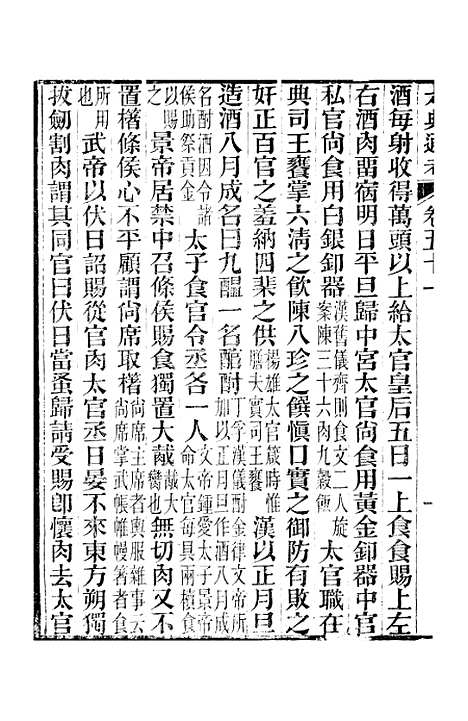 六典通考 卷五十一
酒每射收得萬頭以上給太官皇后五日一上食食賜上左
右酒肉畱宿明日平旦歸中宮太官尙食用黃金釦器中官
私官尙食用白銀釦器漢舊儀齊則食丈二人旋案陳三十六肉九穀飯太官職在
典司王饔掌六淸之飮陳八珍之饌愼口實之御防有敗之
奸正百官之羞納四裴之供揚雄太官箴時惟膳夫實司王饔漢以正月旦
造酒八月成名曰九醖一名醇酎丁孚漢儀酎金律文帝所加以正月旦作酒八月成
名酎酒因令諸侯助祭貢金太子食官令丞各一人文帝鍾愛太子景帝命太官每具兩檟食
以賜之景帝居禁中召條侯賜食獨置大胾胾大臠也無切肉又不
置櫡條侯心不平顧謂尙席取櫡尙席主席者輿服雜事云尙席掌武帳帷幔箸者食
所用也武帝以伏日詔賜從官肉太官丞日晏不來東方朔獨
拔劍割肉謂其同官曰伏日當蚤歸請受賜卽懷肉去太官